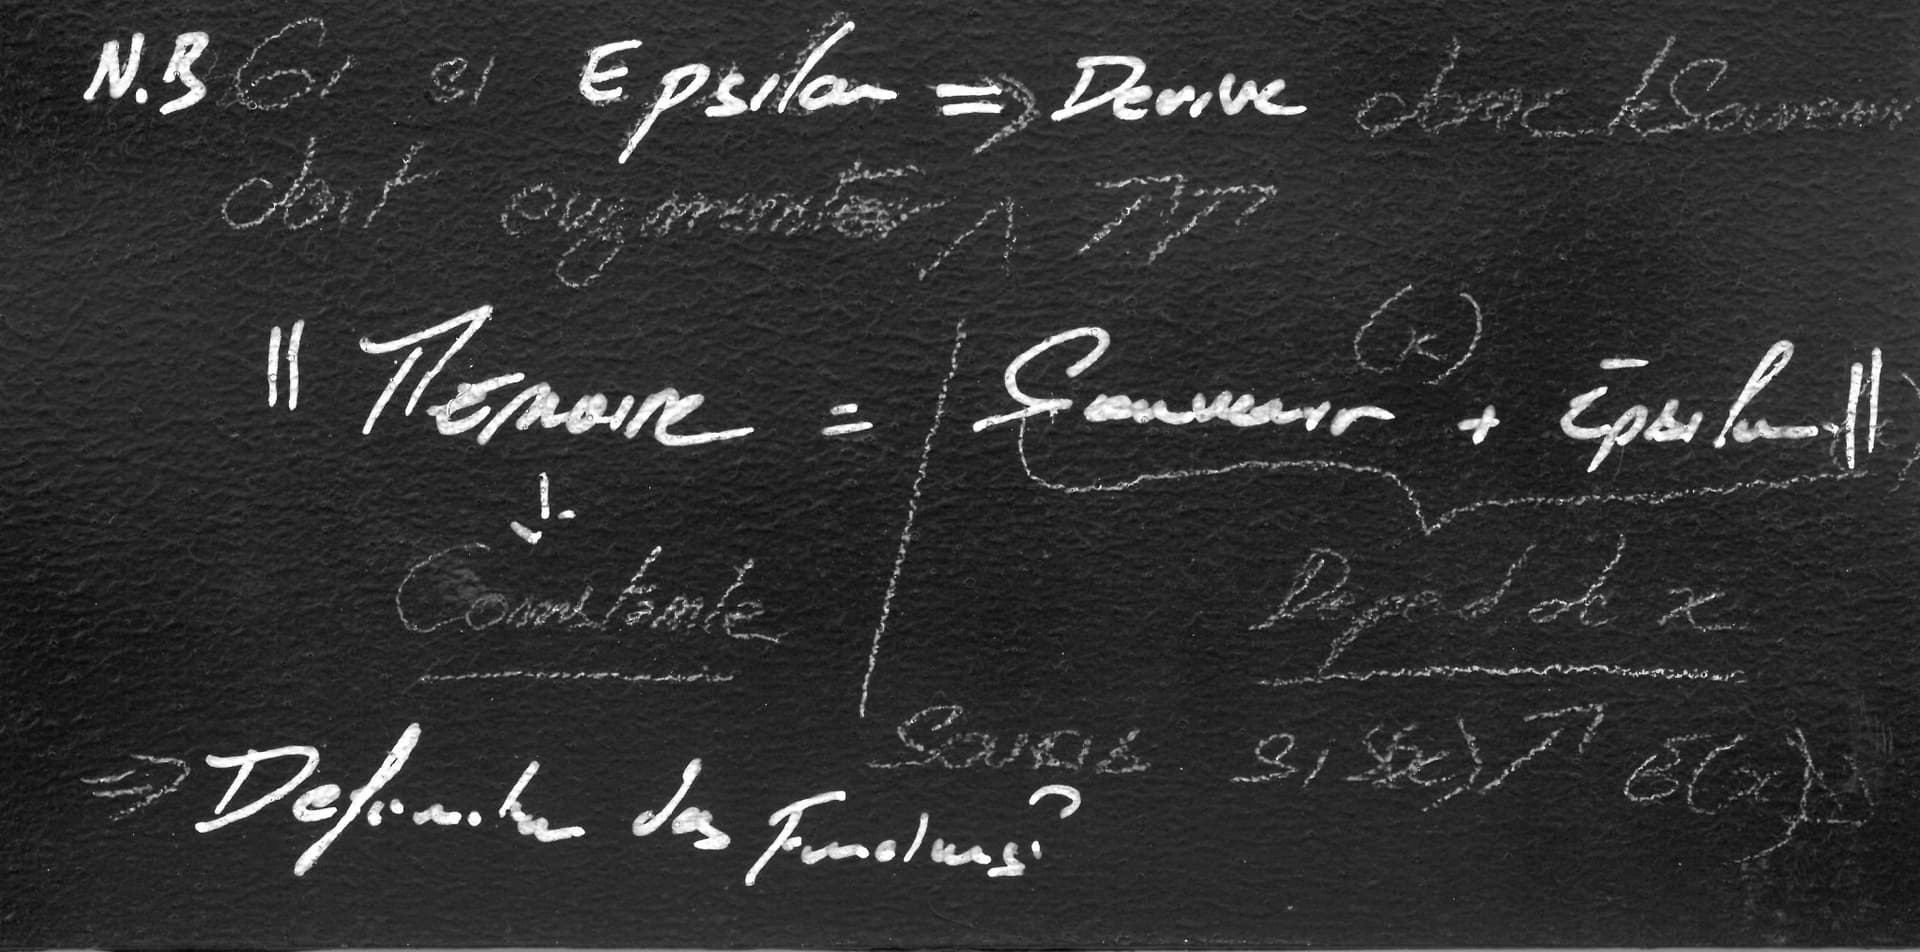 N.B si Epsilon => Derive donc le Souvenir
doit augmenter
|| MEMOIRE = Souvenir (x) + Epsilon ||
Constante
Depend de x
Sous si S(x) ↗ E(x) ↘
=> Definition des Fonctions?